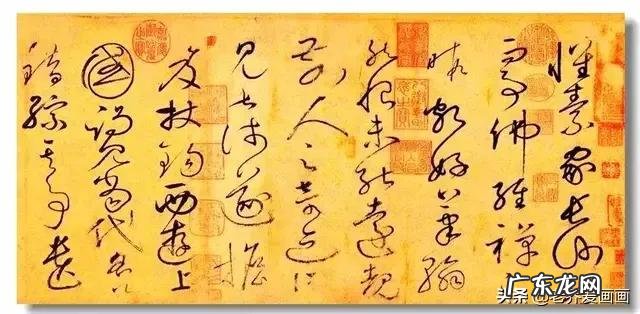 懷素家長沙
事佛經禪
暇頗好筆翰
然恨未能遠覩
前人之奇迹所
見甚淺遂擔
笈杖錫西遊上
國謁見當代名公
錯綜其事遺
广东龙网
头条 爱画画